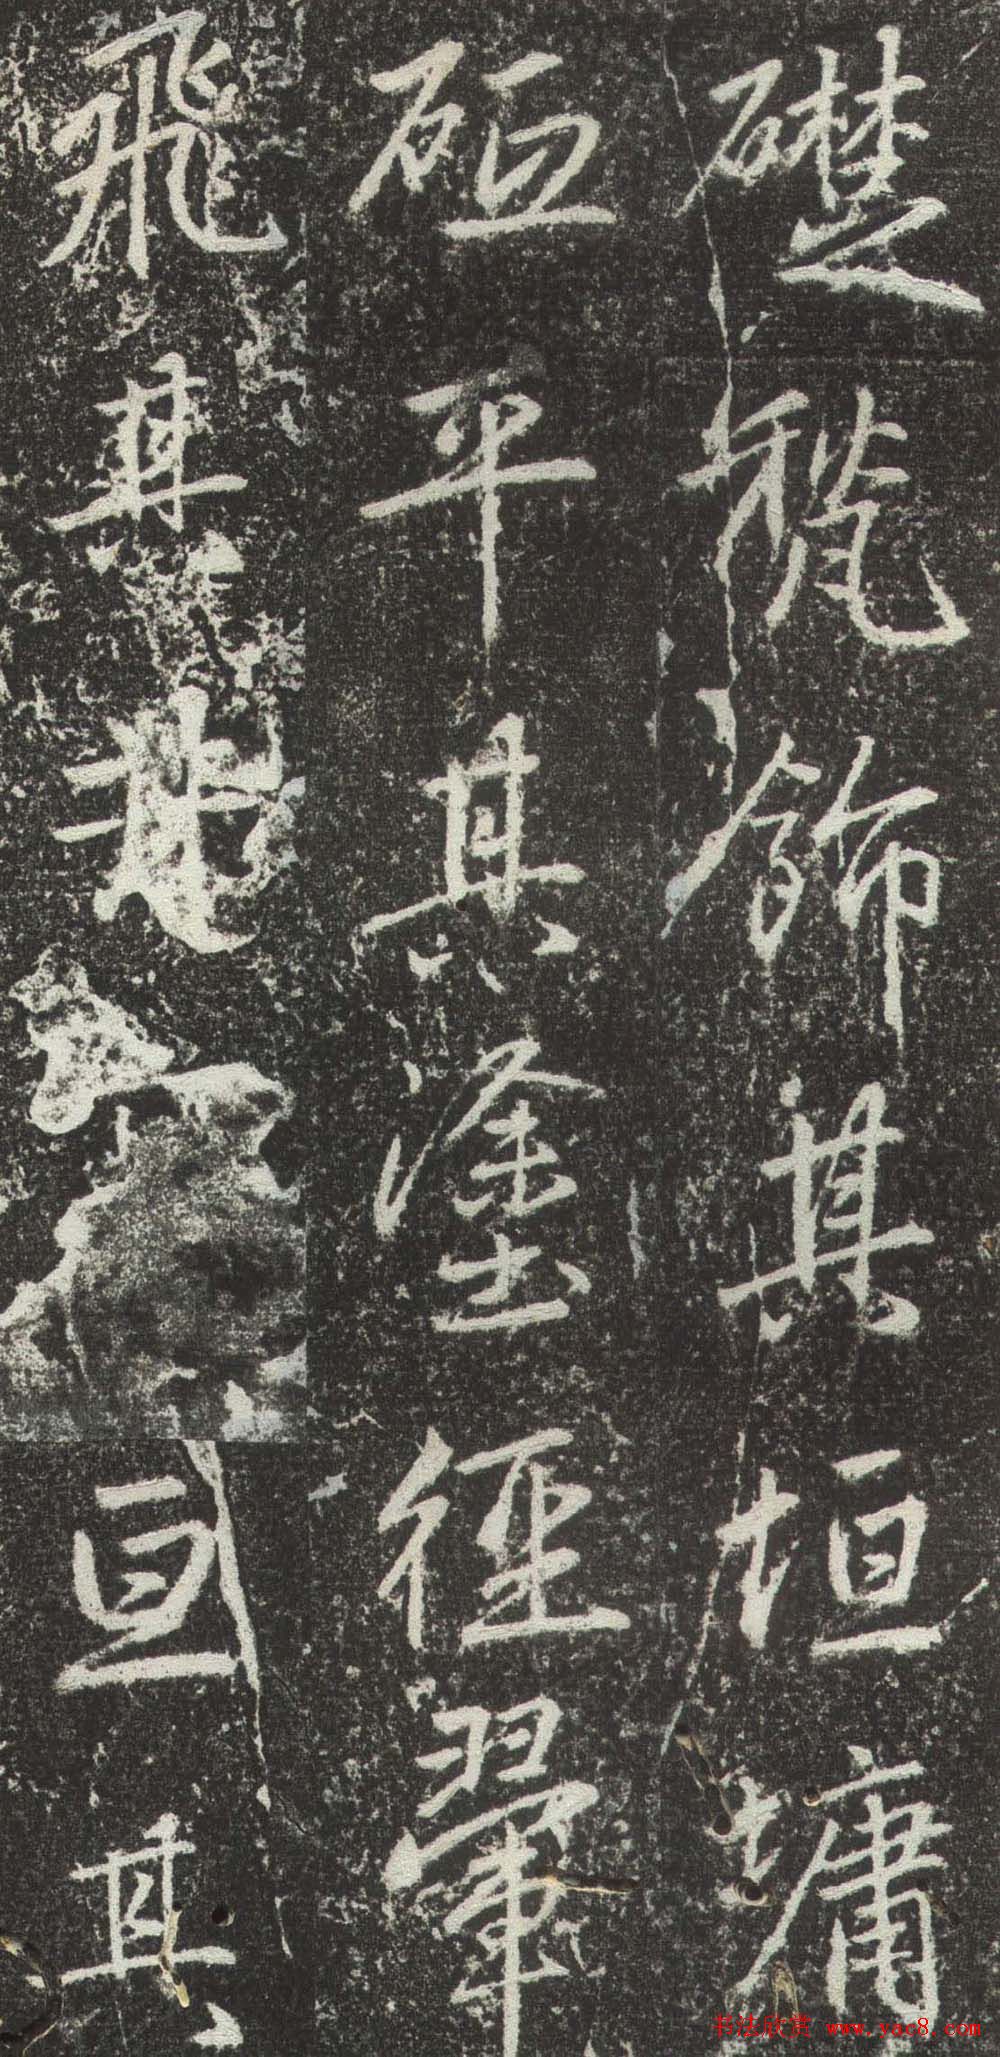 礎瓷飾其垣墉
砥平其塗徑翬
飛其
亘其
书法欣赏 www.yac8.com